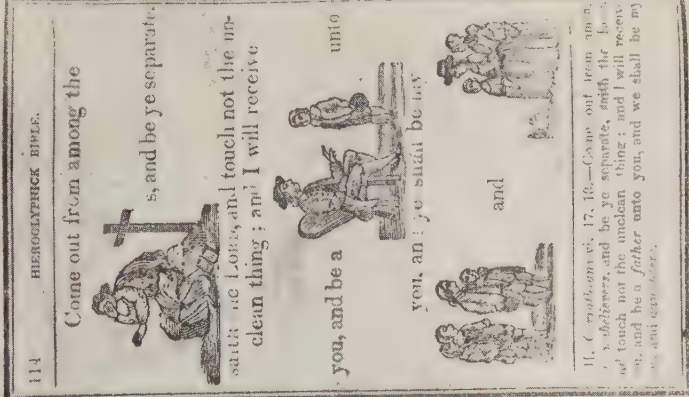 114 HIEROGLYPHICK BIBLE.
Come out from among the
s, and be ye separate,
saith the LORD, and touch not the un-
clean thing; and I will receive
you, and be a unto
you, and ye shall be my
and
II. Corinthians vi. 17, 18.—Come out from
Believers, and be ye separate, saith the
touch not the unclean thing; and I will receive
and be a father unto you, and we shall be my
and